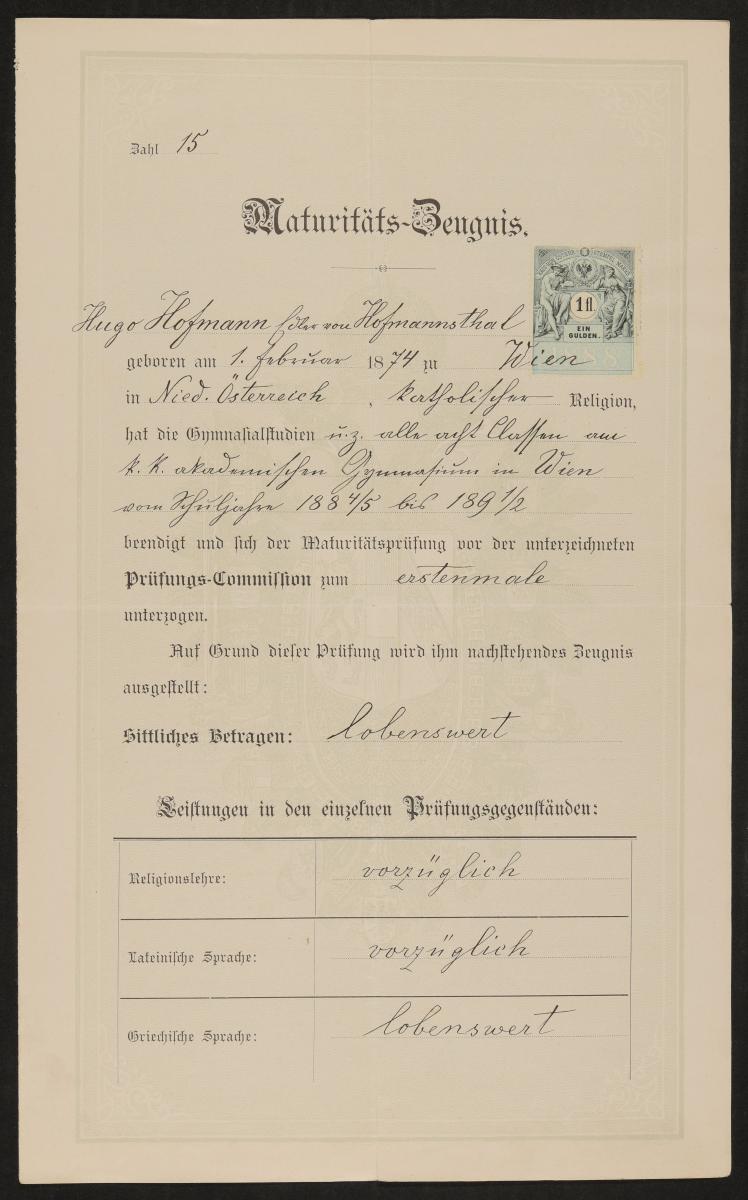 Zahl 15
Maturitäts-Zeugnis.
1 fl
EIN
GULDEN.
Hugo Hofmann Edler von Hofmannsthal
geboren am 1. Februar 1874 zu Wien
in Nied. Österreich, katholischer Religion,
hat die Gymnasialstudien u. z. alle acht Classen am
k. k. akademischen Gymnasium in Wien
vom Schuljahre 1884/5 bis 1891/2
beendigt und sich der Maturitätsprüfung vor der unterzeichneten
Prüfungs-Commission zum erstenmale
unterzogen.
Auf Grund dieser Prüfung wird ihm nachstehendes Zeugnis
ausgestellt:
Sittliches Betragen: lobenswert
Leistungen in den einzelnen Prüfungsgegenständen:
Religionslehre: vorzüglich
Lateinische Sprache: vorzüglich
Griechische Sprache: lobenswert